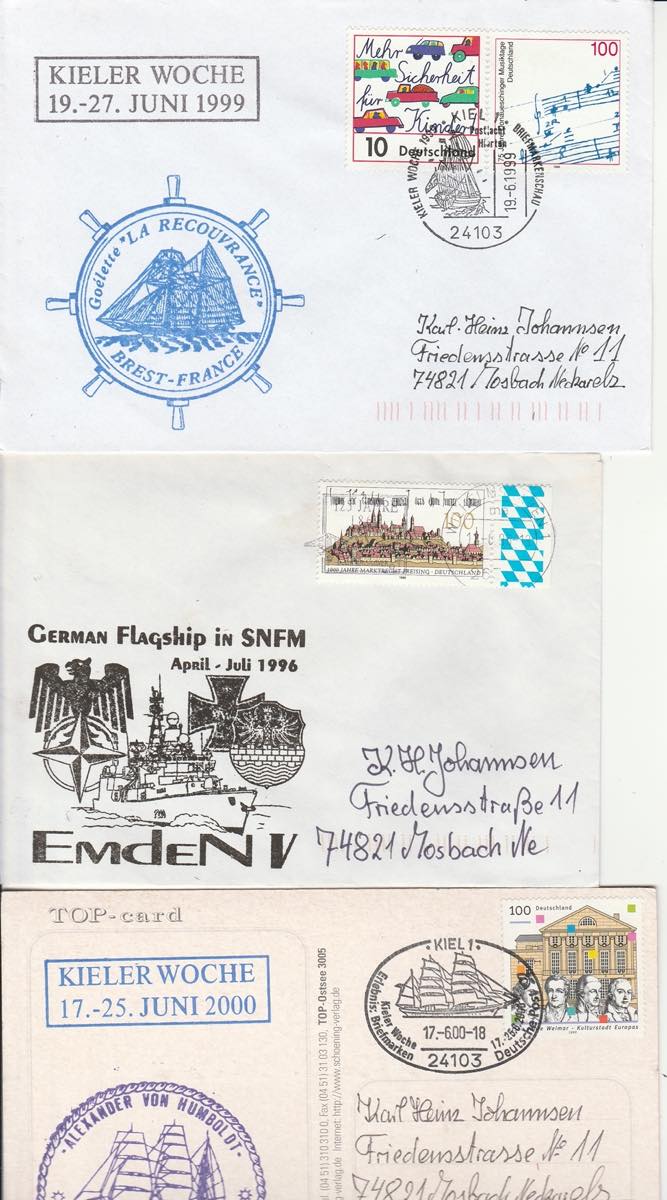 KIELER WOCHE
19.-27. JUNI 1999
Mehr
Sicherheit
für
Kinder
10 Deutschland
100
75 Jahre Donaueschinger Musiktage
Deutschland
KIEL 1
Postjacht
Hiorten
KIELER WOCHE 1999
BRIEFMARKENSCHAU
19.-6.1999
24103
Goélette "LA RECOUVRANCE"
BREST-FRANCE
Karl-Heinz Johannsen
Friedensstrasse No 11
74821 Mosbach Neckarelz
125 JAHRE
100
1000 JAHRE MARKTRECHT FREISING · DEUTSCHLAND
1996
GERMAN FLAGSHIP IN SNFM
April - Juli 1996
EMDEN V
K. H. Johannsen
Friedensstraße 11
74821 Mosbach Ne
TOP-card
KIELER WOCHE
17.-25. JUNI 2000
ALEXANDER VON HUMBOLDT
Fax (04 51) 31 03 130, TOP-Ostsee 3005
(04 51) 310 310 0, Internet: http://www.schoening-verlag.de
100 Deutschland
Weimar - Kulturstadt Europas
1999
· KIEL 1 ·
Erlebnis: Briefmarken
Kieler Woche
17.-6.00-18
Deutsche Post
24103
Karl Heinz Johannsen
Friedensstrasse No 11
74821 Mosbach Neckarelz